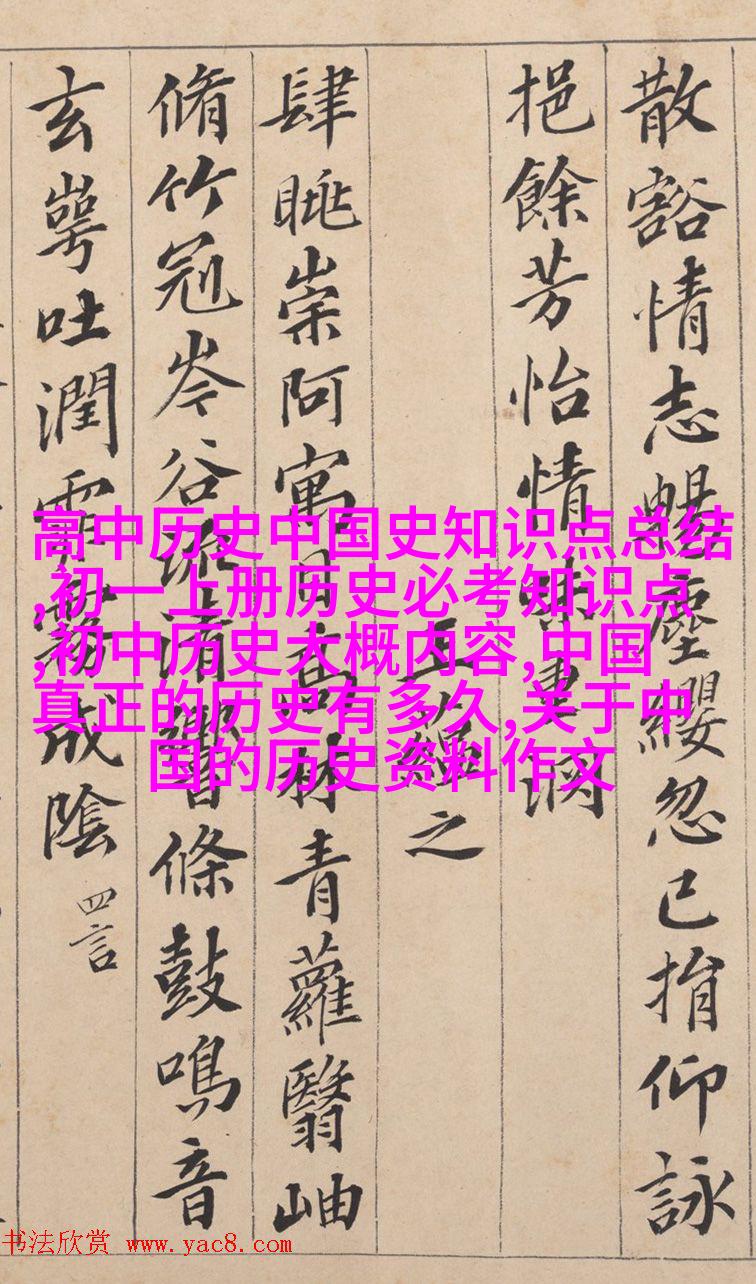 散豁情志暢塵纓忽已捐仰詠
挹餘芳怡情味重渊
王蘊之
肆眺崇阿寓目高林青蘿翳岫
脩竹冠岑谷流清響條鼓鳴音
玄崿吐潤霏霧成陰 四言
高中历史中国史知识点总结
,初一上册历史必考知识点
,初中历史大概内容,中国
真正的历史有多久,关于中
国的历史资料作文
书法欣赏 www.yac8.com